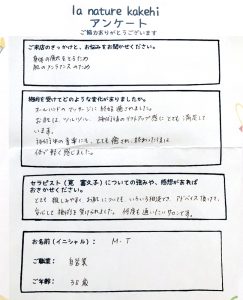 la nature kakehi
アンケート
ご協力ありがとうございます
ご来店のきっかけと、お悩みをお聞かせください。
身体の疲れをとるため
肌のメンテナンスのため
施術を受けてどのような変化がありましたか。
オールハンドのマッサージに終始癒されました。
お肌は、ツルツル、施術後のリフトアップ感にとても満足して
います。
施術中の音楽にも、とても癒され、終わったあとは
体が軽く感じました。
セラピスト(筧 富久子)についての強みや、感想があれば
おきかせください。
とても親しみやすく、お肌について、いろいろ相談でき、アドバイス頂けて、
安心して施術を受けられました。何度も通いたいサロンです。
お名前(イニシャル): M・T
ご職業: 自営業
ご年齢: 38歳